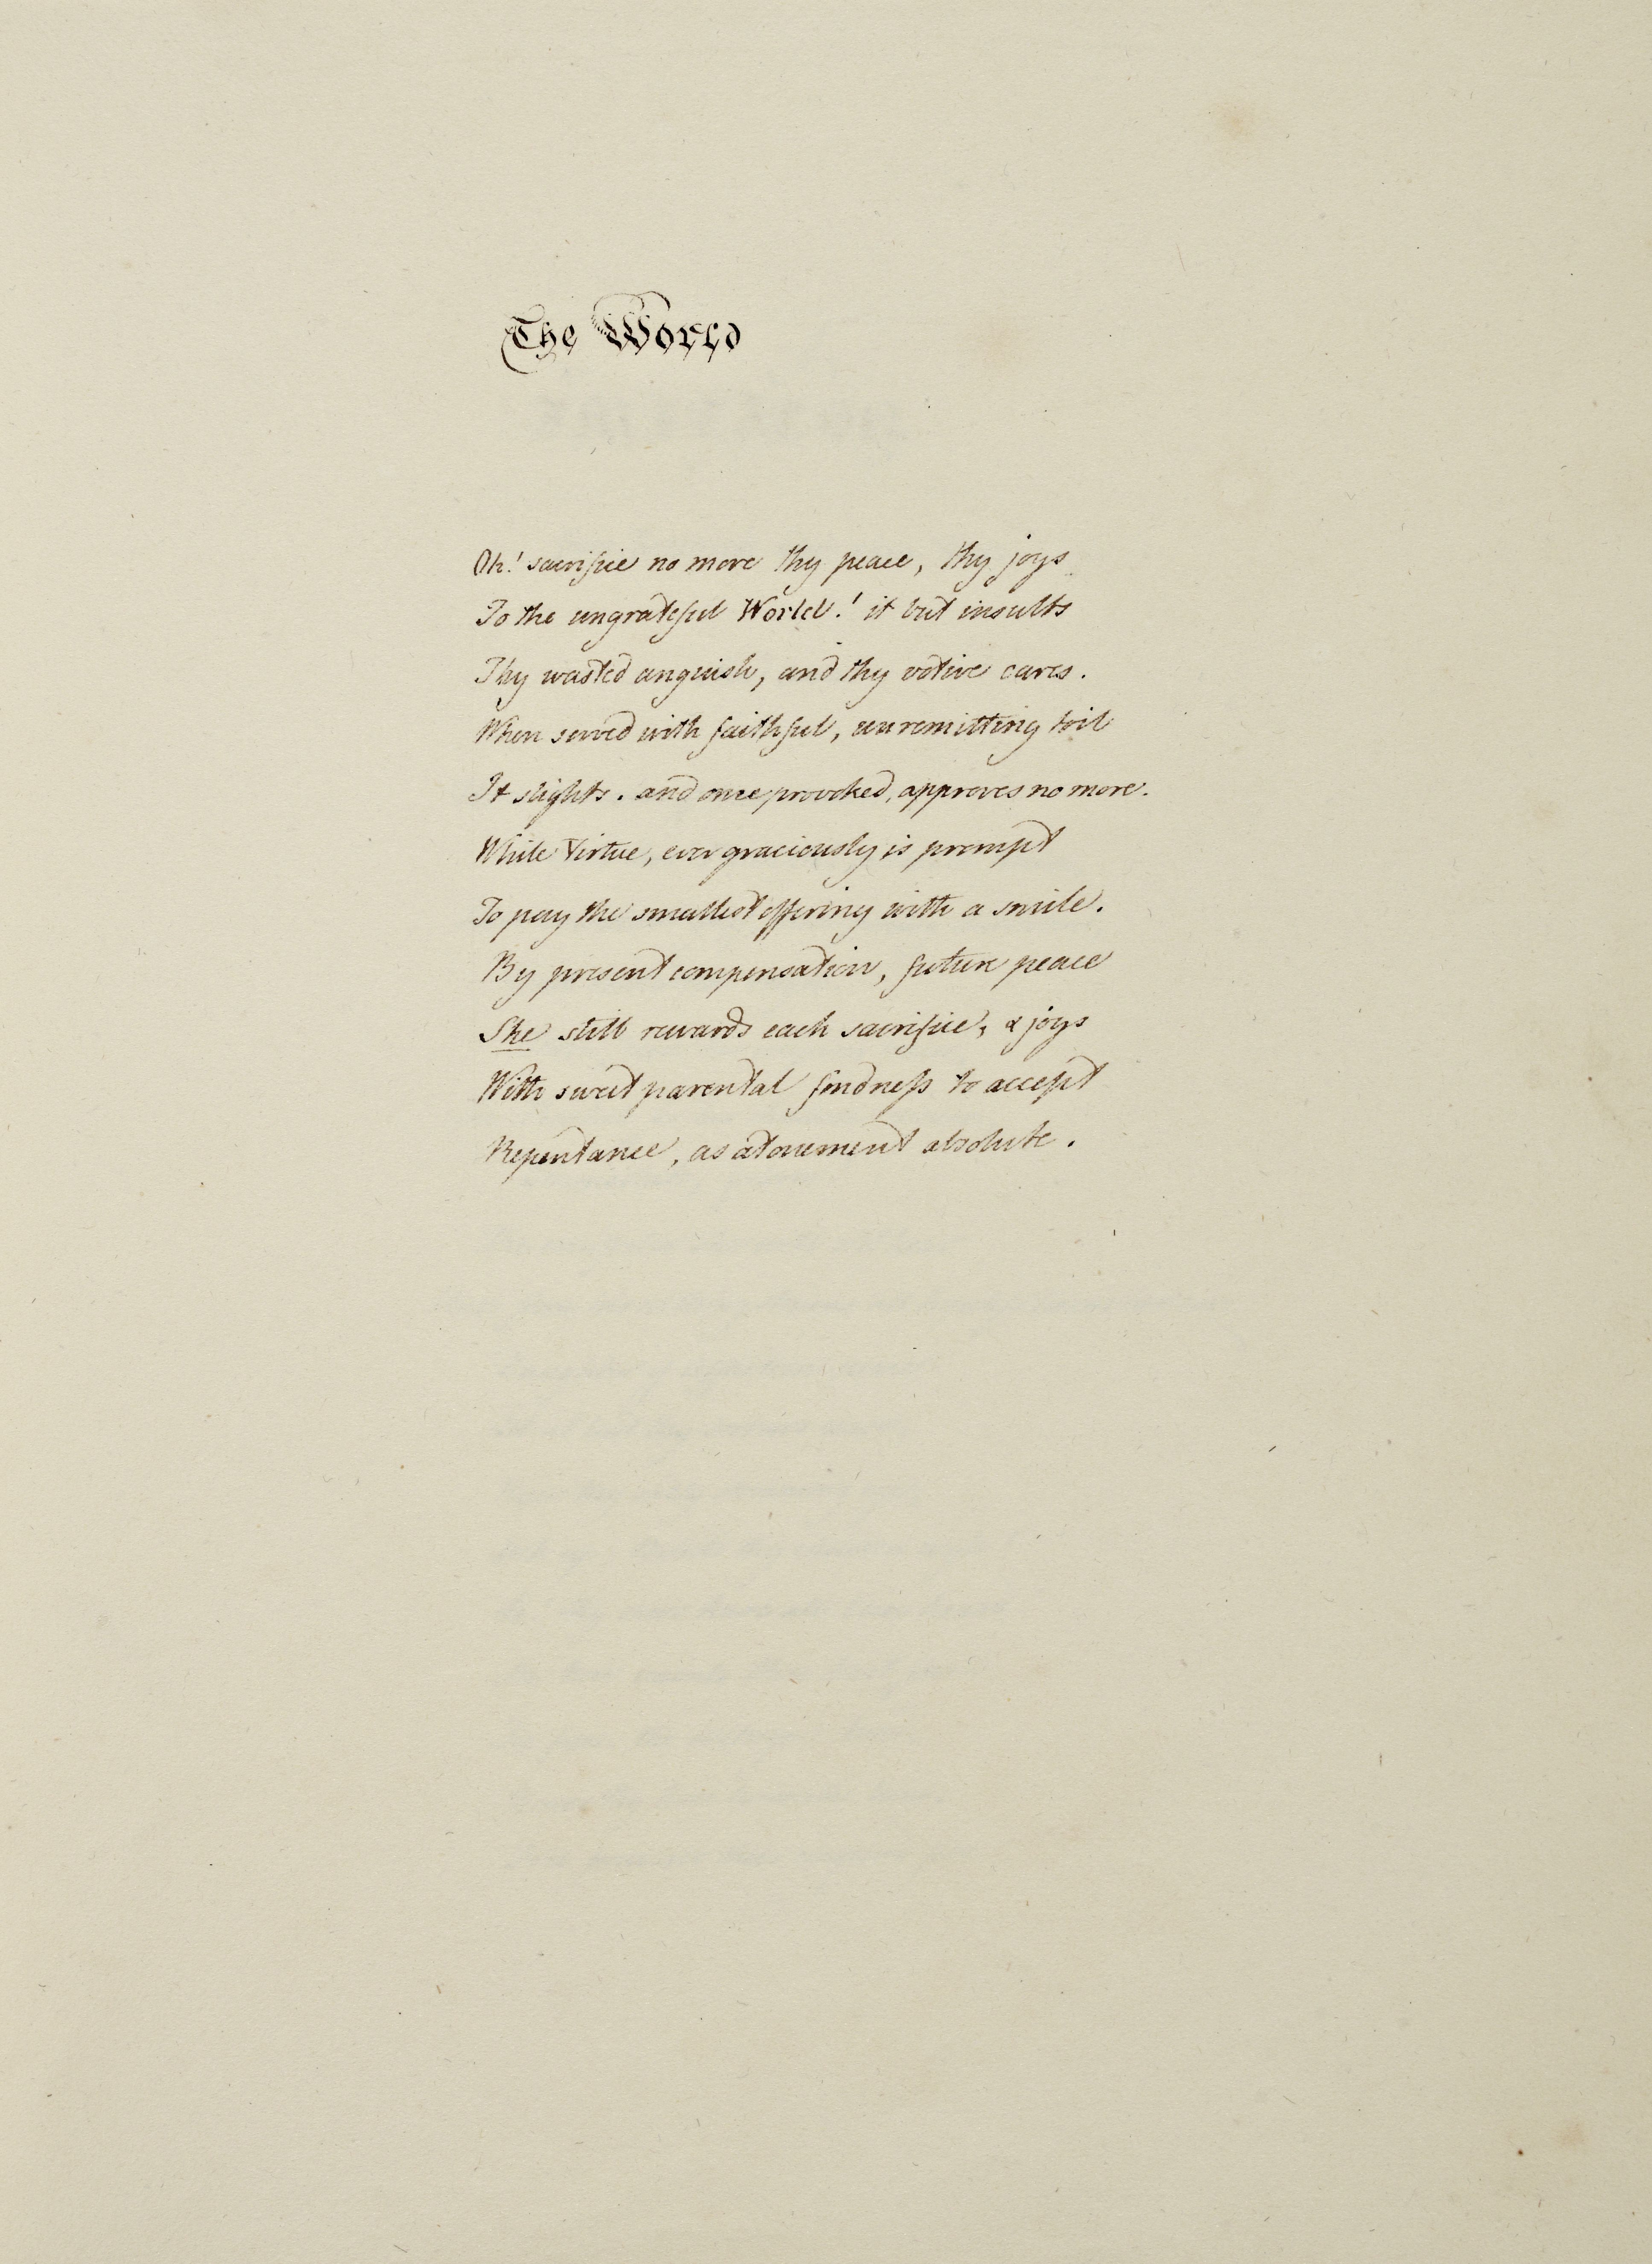 The World
Oh! sacrifice no more thy peace, thy joys
To the ungrateful World! it but insults
Thy wasted anguish, and thy votive cares.
When served with faithful, unremitting toil
It slights. and once provoked, approves no more.
While Virtue, ever graciously is prompt
To pay the smallest offering with a smile.
By present compensation, future peace
She still rewards each sacrifice, & joys
With sweet parental fondneſs to accept
Repentance, as atonement absolute.